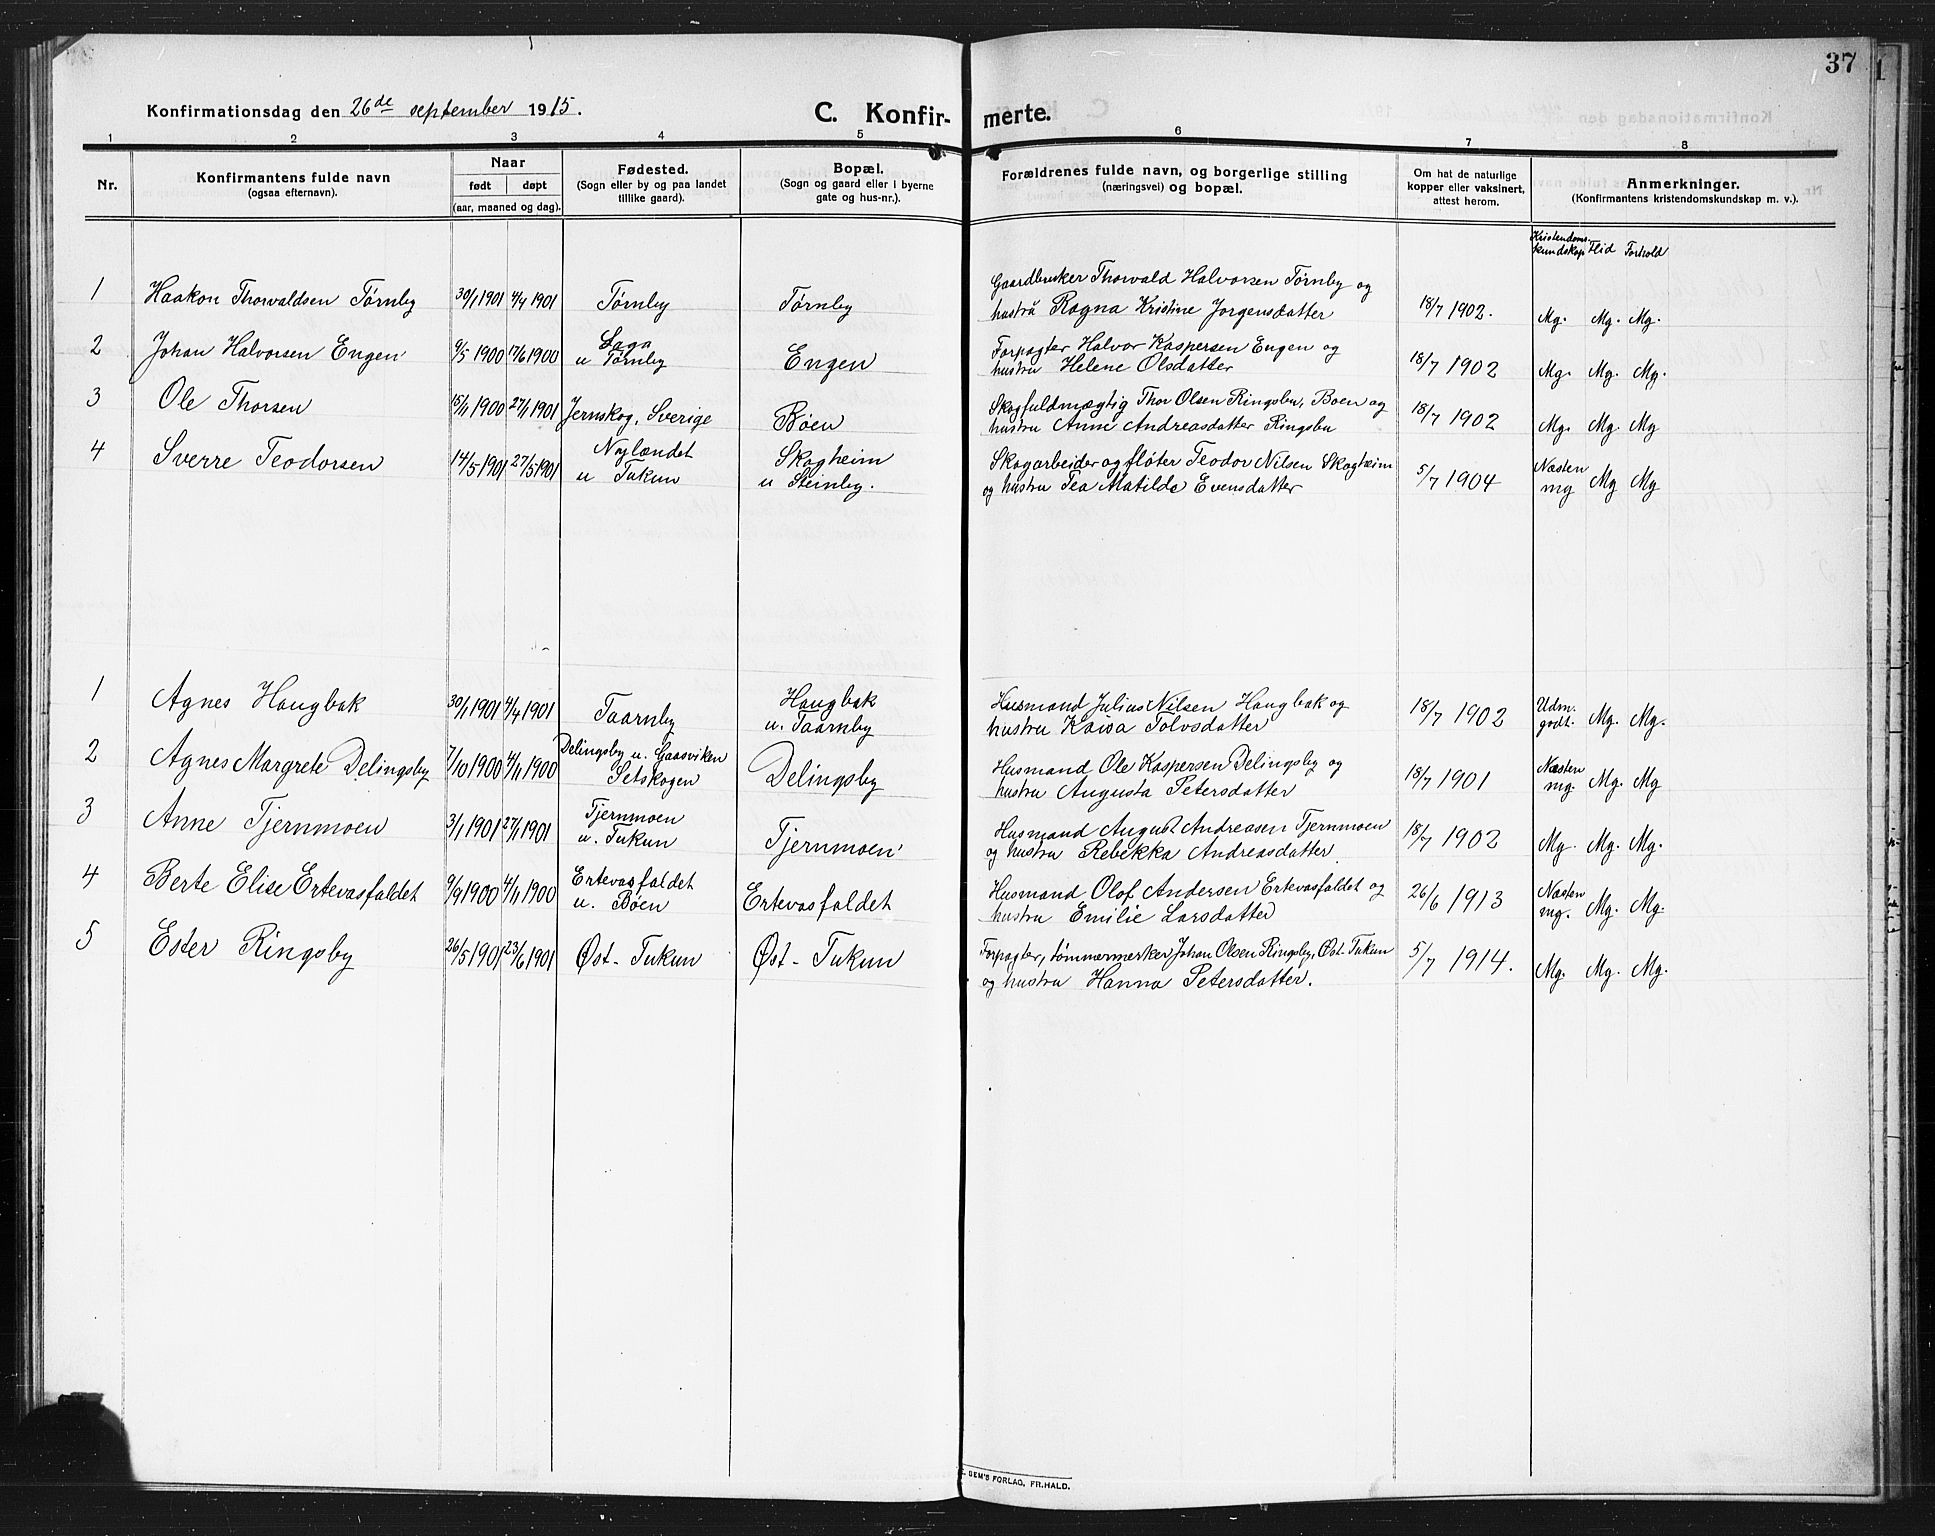 37
Konfirmationsdag den 26de september 1915.
C. Konfir- merte.
1 2 3 4 5 6 7 8
Nr.
Konfirmantens fulde navn
(ogsaa efternavn).
Naar
født døpt
(aar, maaned og dag).
Fødested.
(Sogn eller by og paa landet
tillike gaard).
Bopæl.
(Sogn og gaard eller i byerne
gate og hus-nr.).
Forældrenes fulde navn, og borgerlige stilling
(næringsvei) og bopæl.
Om hat de naturlige
kopper eller vaksinert,
attest herom.
Anmerkninger.
(Konfirmantens kristendomskundskap m. v.).
Kristendoms-
kundskap Flid Forhold
1 Haakon Thorvaldsen Tørnby 30/1 1901 4/4 1901 Tørnby Tørnby
Gaardbruker Thorvald Halvorsen Tørnby og
hustru Ragna Kristine Jorgensdatter 18/7 1902. Mg. Mg. Mg.
2 Johan Halvorsen Engen 9/5 1900 17/6 1900 Laga
u Tørnby Engen
Forpagter Halvor Kaspersen Engen og
hustru Helene Olsdatter 18/7 1902 Mg. Mg. Mg.
3 Ole Thorsen 15/11 1900 27/1 1901 Jernskog, Sverige Bøen
Skogfuldmægtig Thor Olsen Ringsby, Boen og
hustru Anne Andreasdatter Ringsby 18/7 1902 Mg. Mg. Mg
4 Sverre Teodorsen 14/5 1901 27/5 1901 Nylændet
u Tukun Skogheim
u Steinby.
Skogarbeider og fløter Teodor Nilsen Skogheim
og hustru Tea Matilde Evensdatter 5/7 1904 Næsten
mg Mg Mg
1 Agnes Haugbak 30/1 1901 4/4 1901 Taarnby Haugbak
u. Taarnby
Husmand Julius Nilsen Haugbak og
hustru Kaisa Tolvsdatter 18/7 1902 Udm.
godt. Mg. Mg.
2 Agnes Margrete Delingsby 7/10 1900 4/11 1900 Delingsby u. Gaasviken
Setskogen Delingsby
Husmand Ole Kaspersen Delingsby og
hustru Augusta Petersdatter 18/7 1901 Næsten
mg. Mg. Mg
3 Anne Tjernmoen 3/1 1901 27/1 1901 Tjernmoen
u. Tukun Tjernmoen
Husmand August Andreasen Tjernmoen
og hustru Rebekka Andreasdatter. 18/7 1902 Mg. Mg. Mg.
4 Berte Elise Ertevasfaldet 9/9 1900 4/11 1900 Ertevasfaldet
u. Bøen Ertevasfaldet
Husmand Olof Andersen Ertevasfaldet og
hustru Emilie Larsdatter 26/6 1913 Næsten
mg. Mg. Mg.
5 Ester Ringsby 26/5 1901 23/6 1901 Øst-Tukun Øst-Tukun
Forpagter, tømmermerker Johan Olsen Ringsby, Øst-Tukun
og hustru Hanna Petersdatter. 5/7 1914. Mg. Mg. Mg.
SEM'S FORLAG, FR.HALD.